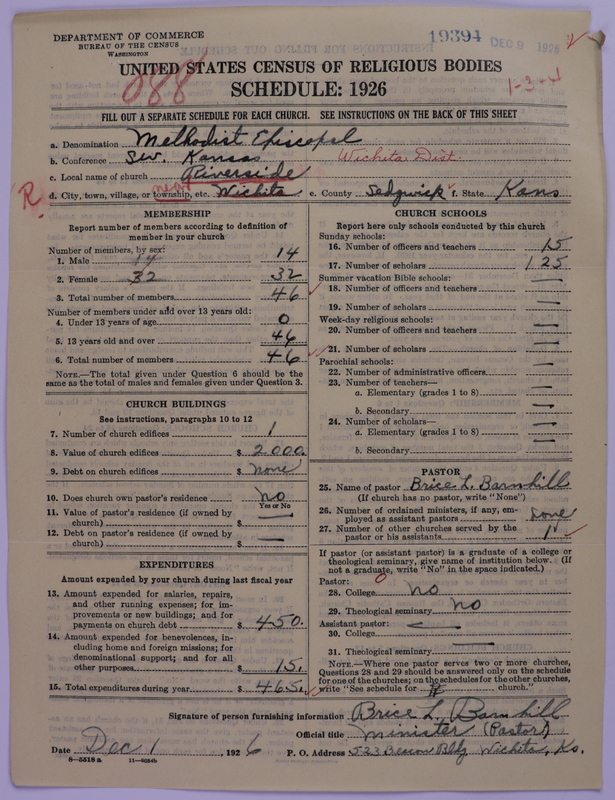 DEPARTMENT OF COMMERCE
BUREAU OF THE CENSUS
WASHINGTON
19394 DEC 9 1926
088
1-3-4
UNITED STATES CENSUS OF RELIGIOUS BODIES
SCHEDULE: 1926
FILL OUT A SEPARATE SCHEDULE FOR EACH CHURCH. SEE INSTRUCTIONS ON THE BACK OF THIS SHEET
a. Denomination Methodist Episcopal
b. Conference Sw. Kansas Wichita Dist.
c. Local name of church Riverside
R
d. City, town, village, or township, etc. near Wichita e. County Sedgwick f. State Kans
MEMBERSHIP
Report number of members according to definition of member in your church
Number of members, by sex:
1. Male 14 14
2. Female 32 32
3. Total number of members 46
Number of members under and over 13 years old:
4. Under 13 years of age 0
5. 13 years old and over 46
6. Total number of members 46
NOTE.—The total given under Question 6 should be
same as the total of males and females given under Question 3.
CHURCH BUILDINGS
See instructions, paragraphs 10 to 12
7. Number of church edifices 1
8. Value of church edifices $ 2000.
9. Debt on church edifices $ none
10. Does church own pastor's residence no
Yes or No
11. Value of pastor's residence (if owned by
church) $ —
12. Debt on pastor's residence (if owned by
church) $ —
EXPENDITURES
Amount expended by your church during last fiscal year
13. Amount expended for salaries, repairs,
and other running expenses; for im-
provements or new buildings; and for
payments on church debt $ 450.
14. Amount expended for benevolences, in-
cluding home and foreign missions; for
denominational support; and for all
other purposes $ 15.
15. Total expenditures during year $ 465.
CHURCH SCHOOLS
Report here only schools conducted by this church
Sunday schools:
16. Number of officers and teachers 15
17. Number of scholars 125
Summer vacation Bible schools:
18. Number of officers and teachers —
19. Number of scholars —
Week-day religious schools:
20. Number of officers and teachers —
21. Number of scholars —
Parochial schools:
22. Number of administrative officers —
23. Number of teachers—
a. Elementary (grades 1 to 8) —
b. Secondary —
24. Number of scholars—
a. Elementary (grades 1 to 8) —
b. Secondary —
PASTOR
25. Name of pastor Brice L. Barnhill
(If church has no pastor, write "None")
26. Number of ordained ministers, if any, em-
ployed as assistant pastors none
27. Number of other churches served by the
pastor or his assistants 1
If pastor (or assistant pastor) is a graduate of a college or
theological seminary, give name of institution below. (If
not a graduate, write "No" in the space indicated.)
Pastor: 0
28. College no
29. Theological seminary no
Assistant pastor:
30. College —
31. Theological seminary —
NOTE.—Where one pastor serves two or more churches,
Questions 28 and 29 should be answered only on the schedule
for one of the churches; on the schedules for the other churches,
write "See schedule for church."
Signature of person furnishing information Brice L. Barnhill
Official title Minister (Pastor)
Date Dec 1, 1926 P. O. Address 523 Beacon Bldg Wichita, Ks.
8—5518a 11—9524b